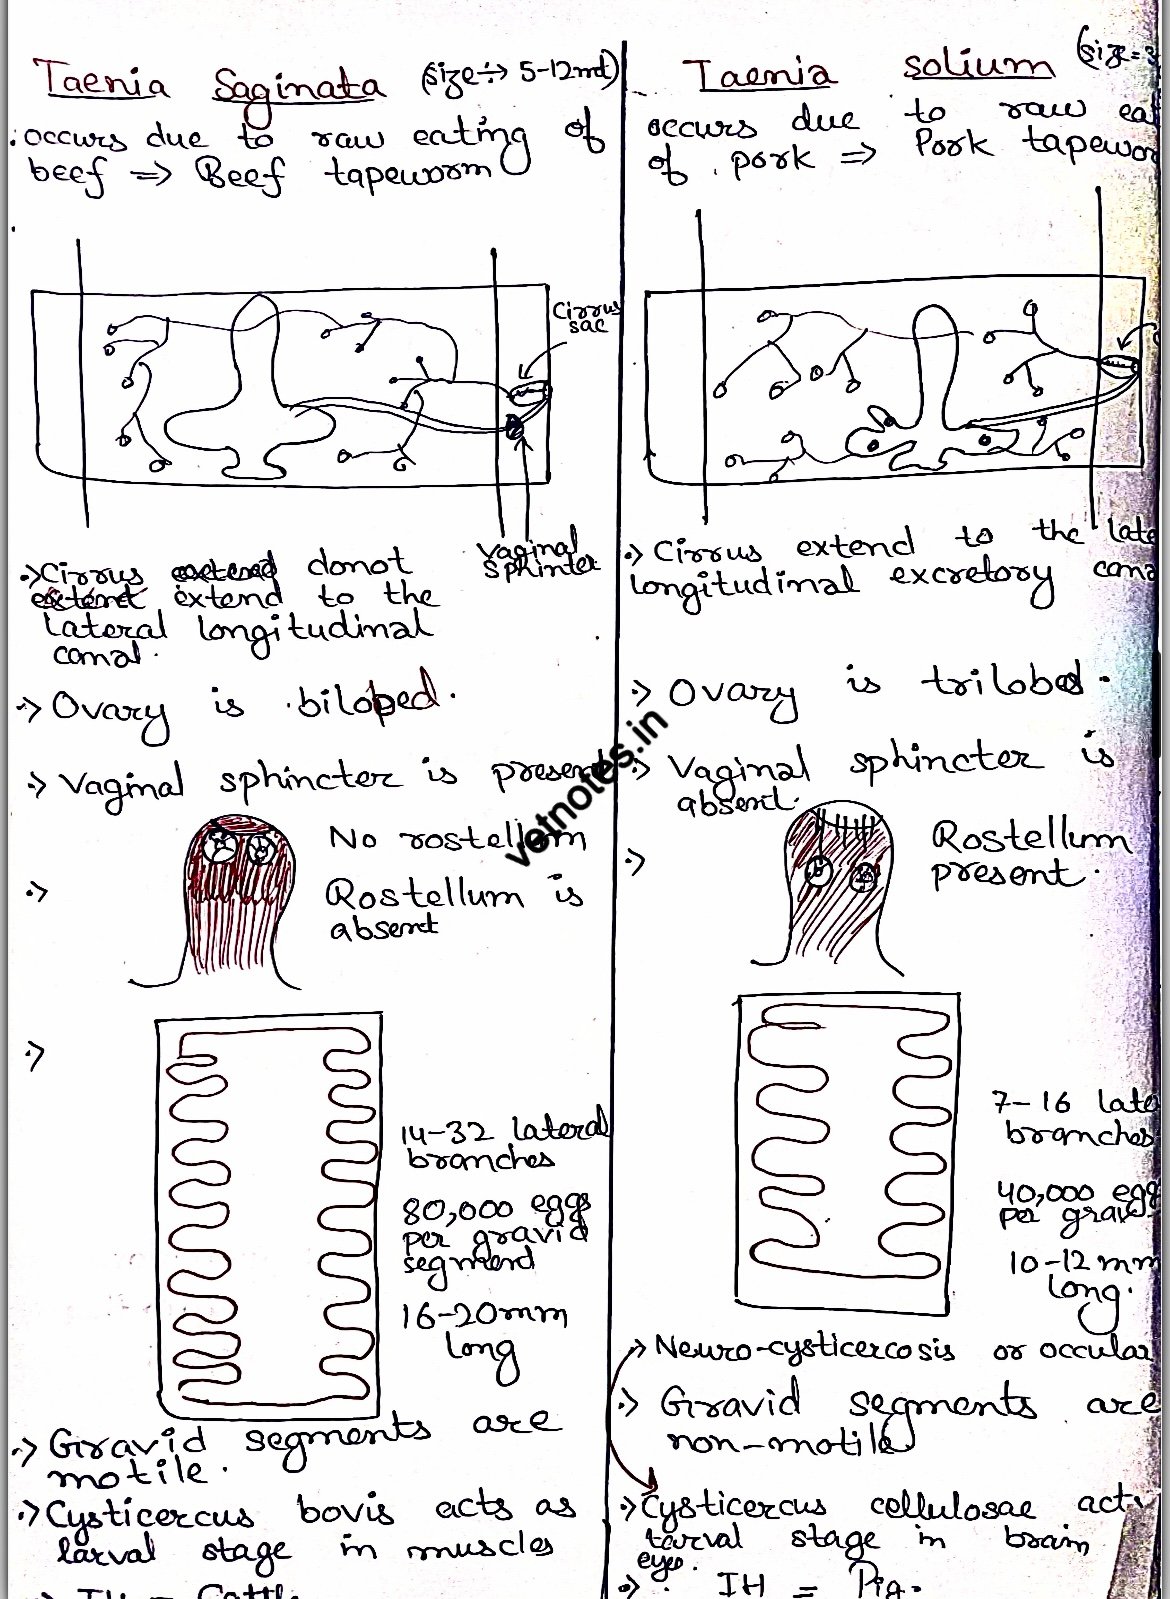 Taenia Saginata (size÷→ 5-12mt)
occurs due to raw eating of
beef ⇒ Beef tapeworm
Cirrus
sac
Vaginal
sphinter
Cirrus extend donot
extent extend to the
lateral longitudinal
canal.
Ovary is biloped.
Vaginal sphincter is present
No rostellum
Rostellum is
absent
14-32 lateral
branches
80,000 eggs
per gravid
segment
16-20mm
long
Gravid segments are
motile.
Cysticercus bovis acts as
larval stage in muscles
IH = Cattle
Taenia solium (size=
occurs due to raw eat
of pork ⇒ Pork tapewor
Cirrus extend to the late
longitudinal excretory cana
Ovary is trilobed.
Vaginal sphincter is
absent.
Rostellum
present.
7-16 late
branches
40,000 egg
per grav
10-12mm
long.
Neuro-cysticercosis or occular
Gravid segments are
non-motile
Cysticercus cellulosae act
larval stage in brain
eyes.
IH = Pig.
vetnotes.in